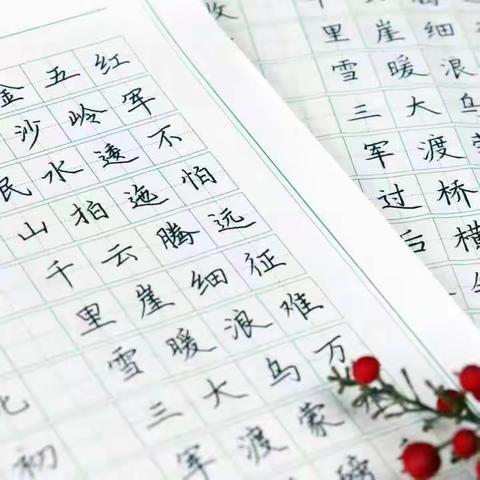 红军不怕远征难万
五岭逶迤腾细浪乌蒙磅
金沙水拍云崖暖大渡
山千里雪三军
初
细浪乌
崖暖大渡桥横
里雪三军过后